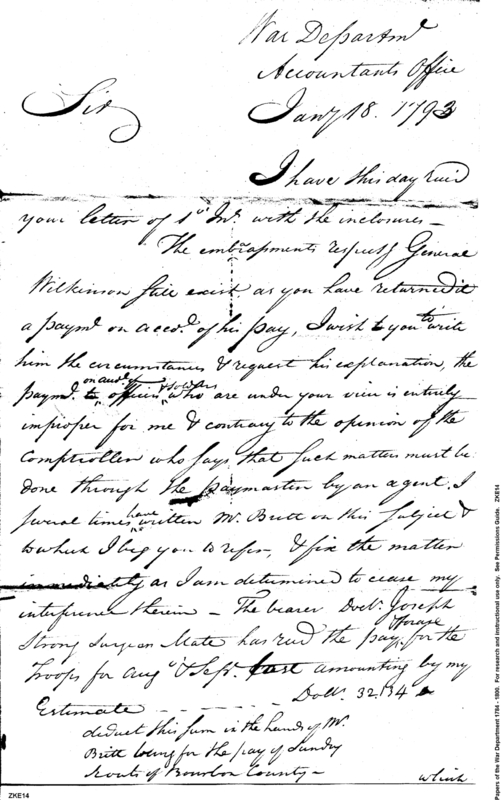 War Departmt
Accountants Office
Jany 18. 1793
Sir
I have this day recd
your letter of 1st Int. with the inclosures –
The embarasments respectg General
Wilkinson still exist, as you have returned it
a paymt on accot. of his pay, I wish you to write
him the circumstances & request his explanation, the
paymt. on accot. of officers & soldiers who are under your view is entirely
improper for me & contrary to the opinion of the
Comptroller who says that such matters must be
done through the paymaster by an agent. I
several times have written Mr. Britt on this subject &
to which I beg you to refer, & fix the matter
immediately as I am determined to cease my
interference therein – The bearer Doctr. Joseph
Strong Surgeon Mate has recd the pay & forage for the
Troops for Augt & Sept. last amounting by my
Estimate - - - - - - Dolls. 32.134
deduct this sum in the hands of Mr.
Britt being for the pay of Sundry
Scouts of Bourbon County –
which
ZKE14
Papers of the War Department 1784 - 1800. For research and instructional use only. See Permissions Guide. ZKE14